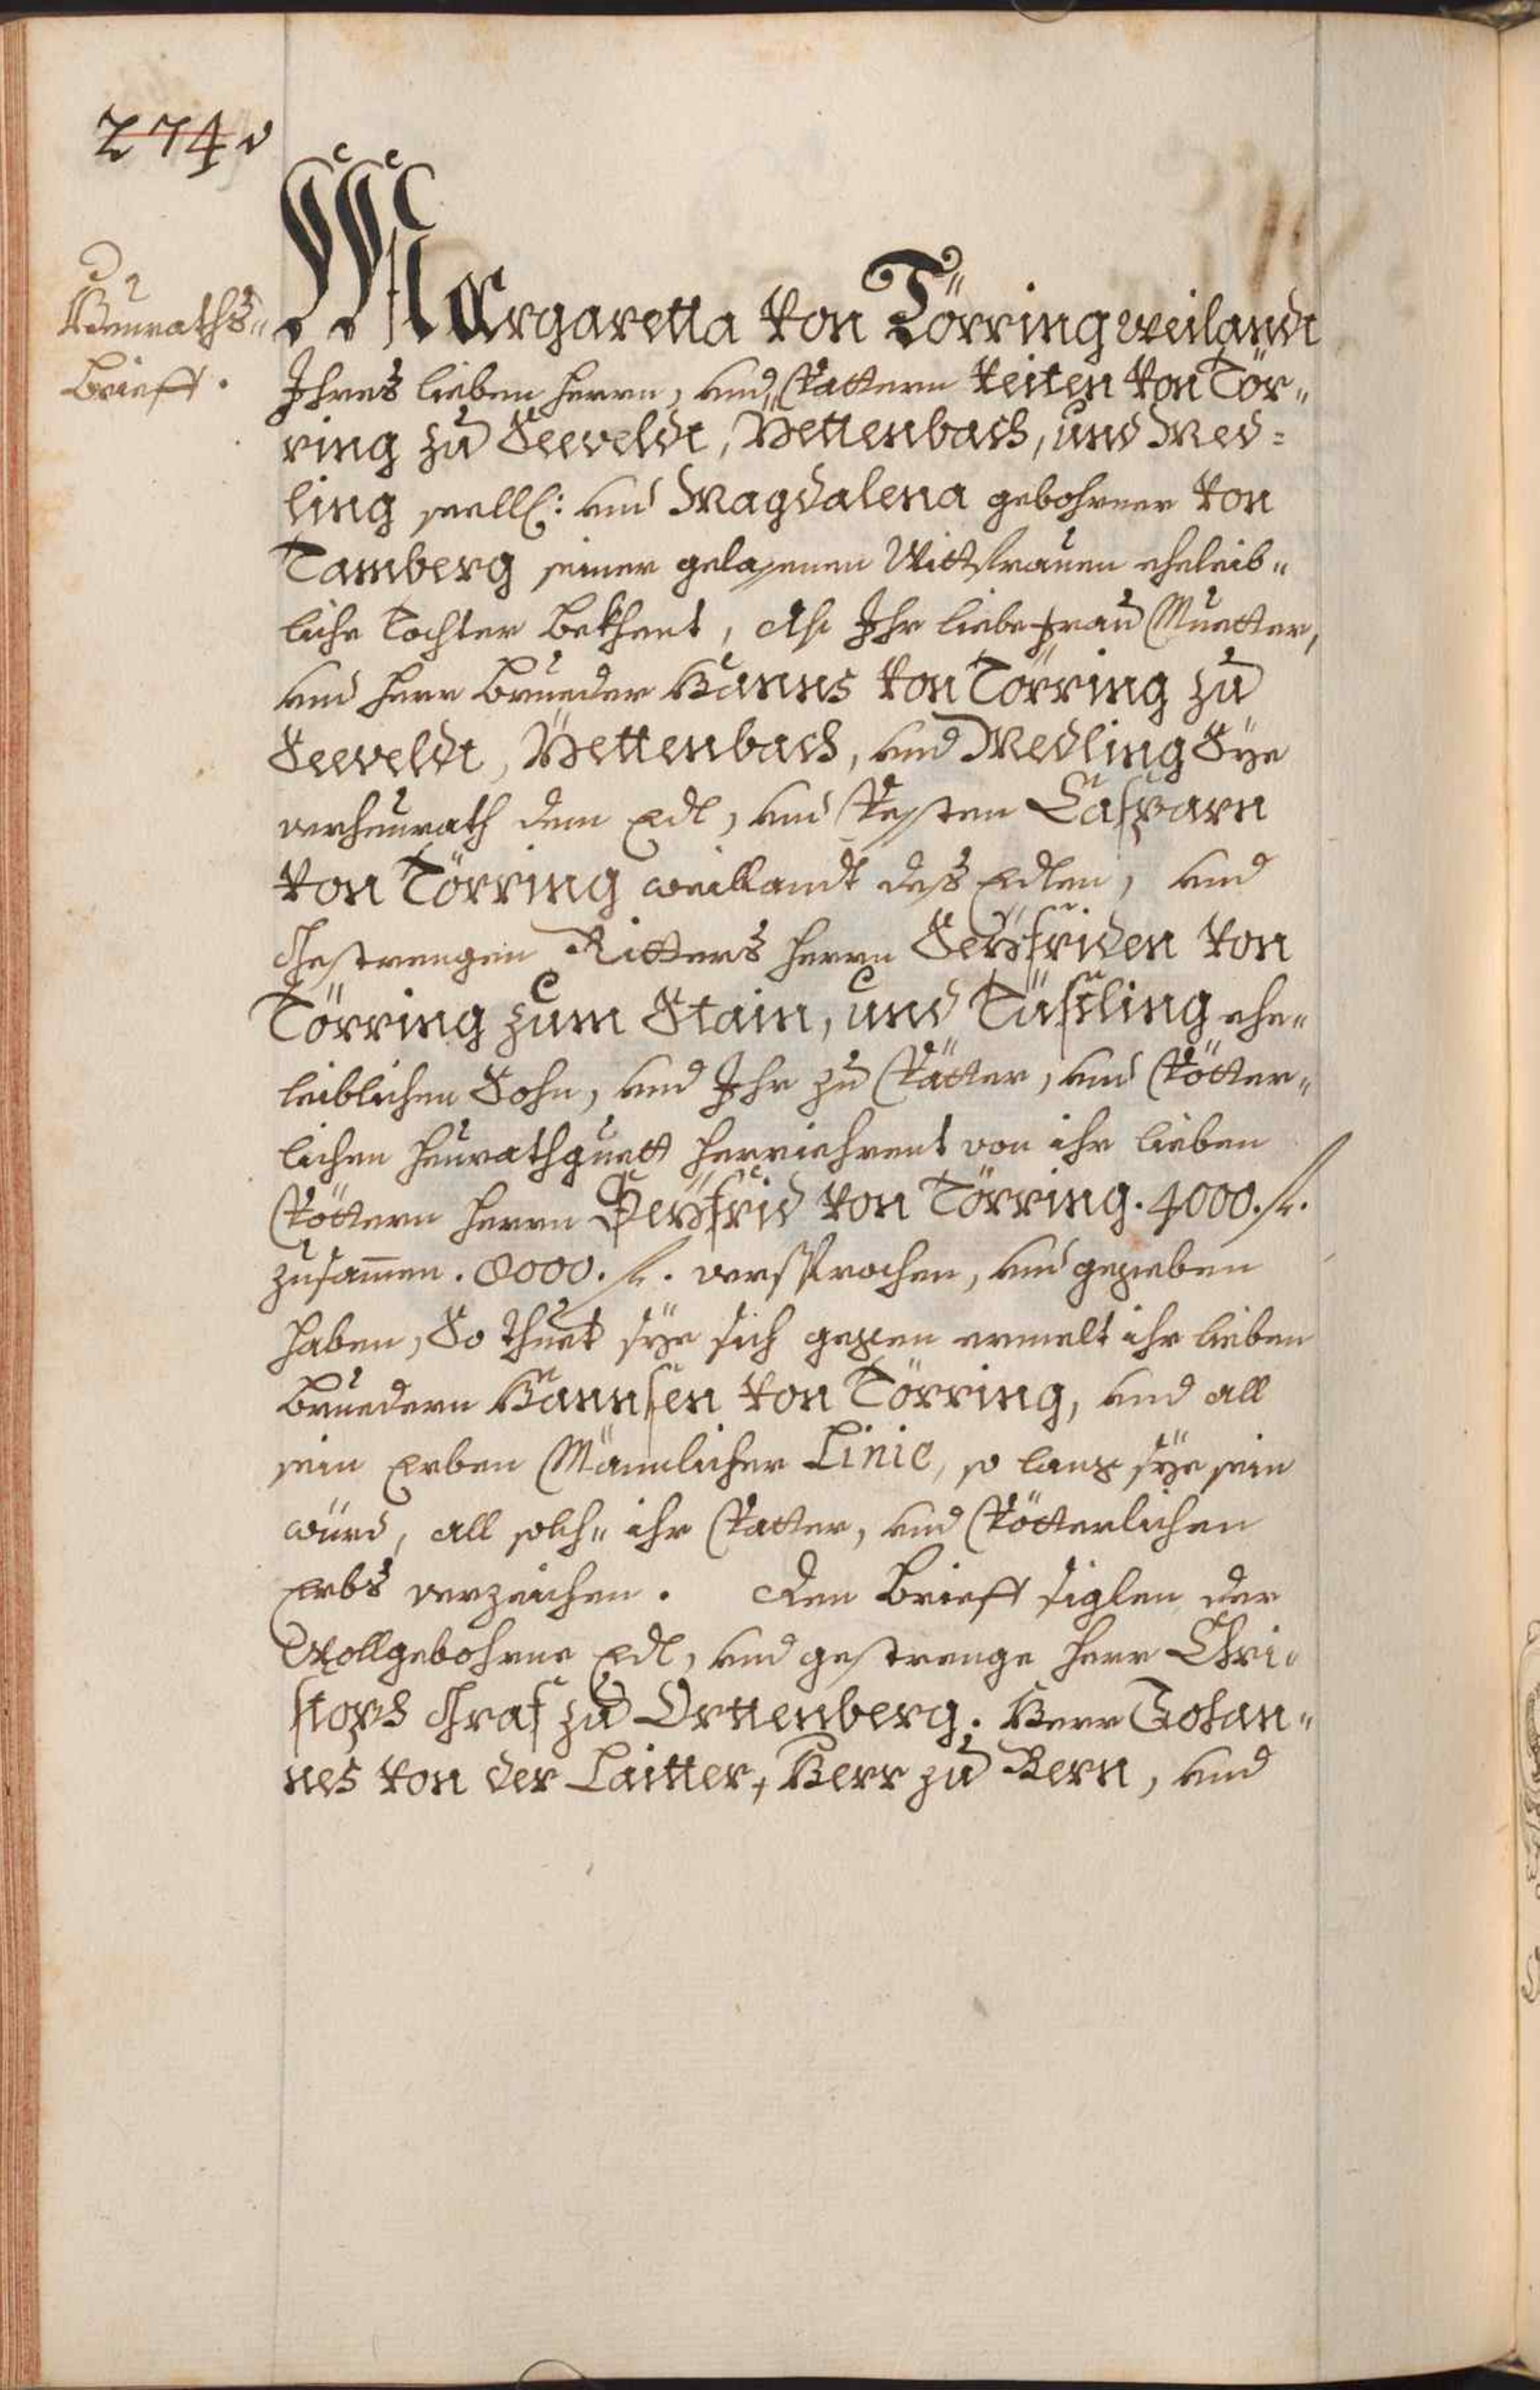 274v
Heuraths-
Brieff.
Margaretta von Törring weilandt
Ihres lieben Herrn, und Vattern Veiten von Tör-
ring zu Seeveldt, Yettenbach, und Med-
ling seell: und Magdalena gebohrner von
Tamberg seiner gelassenen Wittfrauen eheleib-
liche Tochter bekhent, Als Ihr liebe Frau Muetter,
und Herr Brueder Hanns von Törring zu
Seeveldt, Yettenbach, und Medling Sye
verheurath dem Edl, und Vessten Casparn
von Törring weillandt dess Edlen, und
Gestrengen Ritters Herrn Seÿfriden von
Törring zum Stain, und Tüssling ehe-
leiblichen Sohn, und Ihr zu Vätter, und Vötter-
lichen Heurathguett herriehrent von ihr lieben
Vöttern Herrn Seÿfrid von Törring. 4000. fl.
zusammen. 8000. fl. versprochen, und gegeben
haben, So thuet sÿe sich gegen ermelt ihr lieben
Bruedern Hannsen von Törring, und all
sein Erben Männlicher Linie, so lang sÿe sein
würd, all solch- ihr Vatter, und Vötterlichen
Erbs verzeichen. Den Brieff siglen der
Wollgebohrne Edl, und gestrenge Herr Chri-
stoph Graf zu Orttenberg. Herr Johan-
nes von der Laitter, Herr zu Bern, und